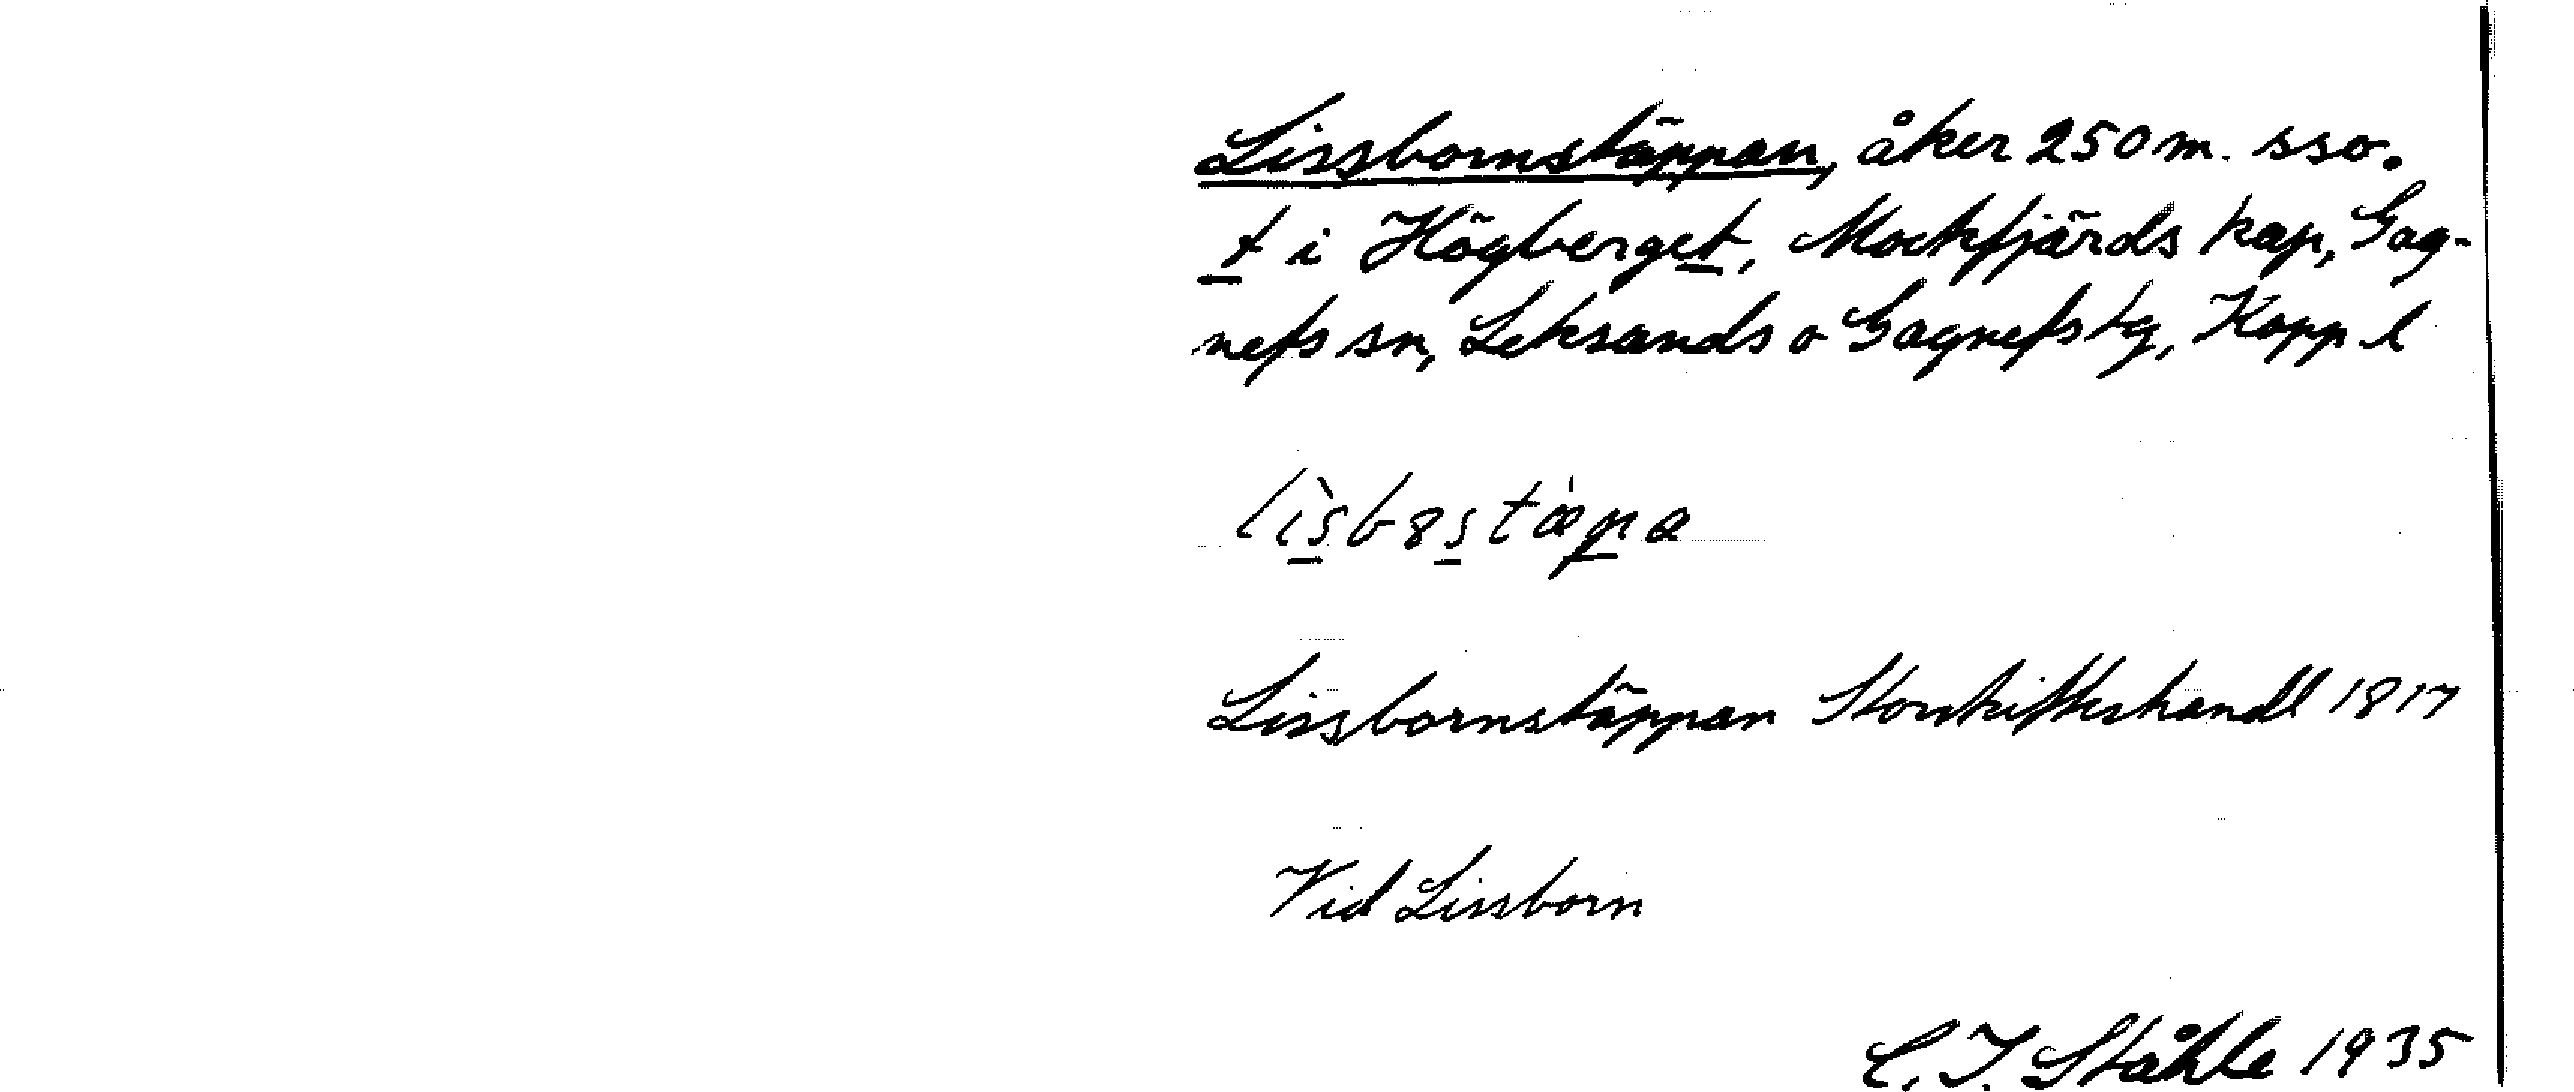 Lissbornstäppan, åker 250 m. sso.
t i Högberget, Mockfjärds kap, Gag-
nefs sn, Leksands o Gagnefs tg, Kopp l
lìsbɞstæ̀pa
Lissbornstäppan Storskifteshandl 1817
Vid Lissborn
C. I. Ståhle 1935